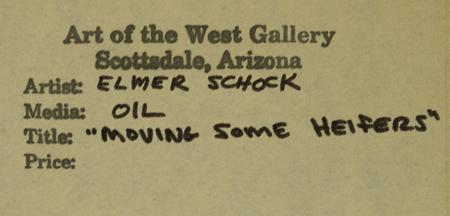 Art of the West Gallery
Scottsdale, Arizona
Artist: ELMER SCHOCK
Media: OIL
Title: "MOVING SOME HEIFERS"
Price: